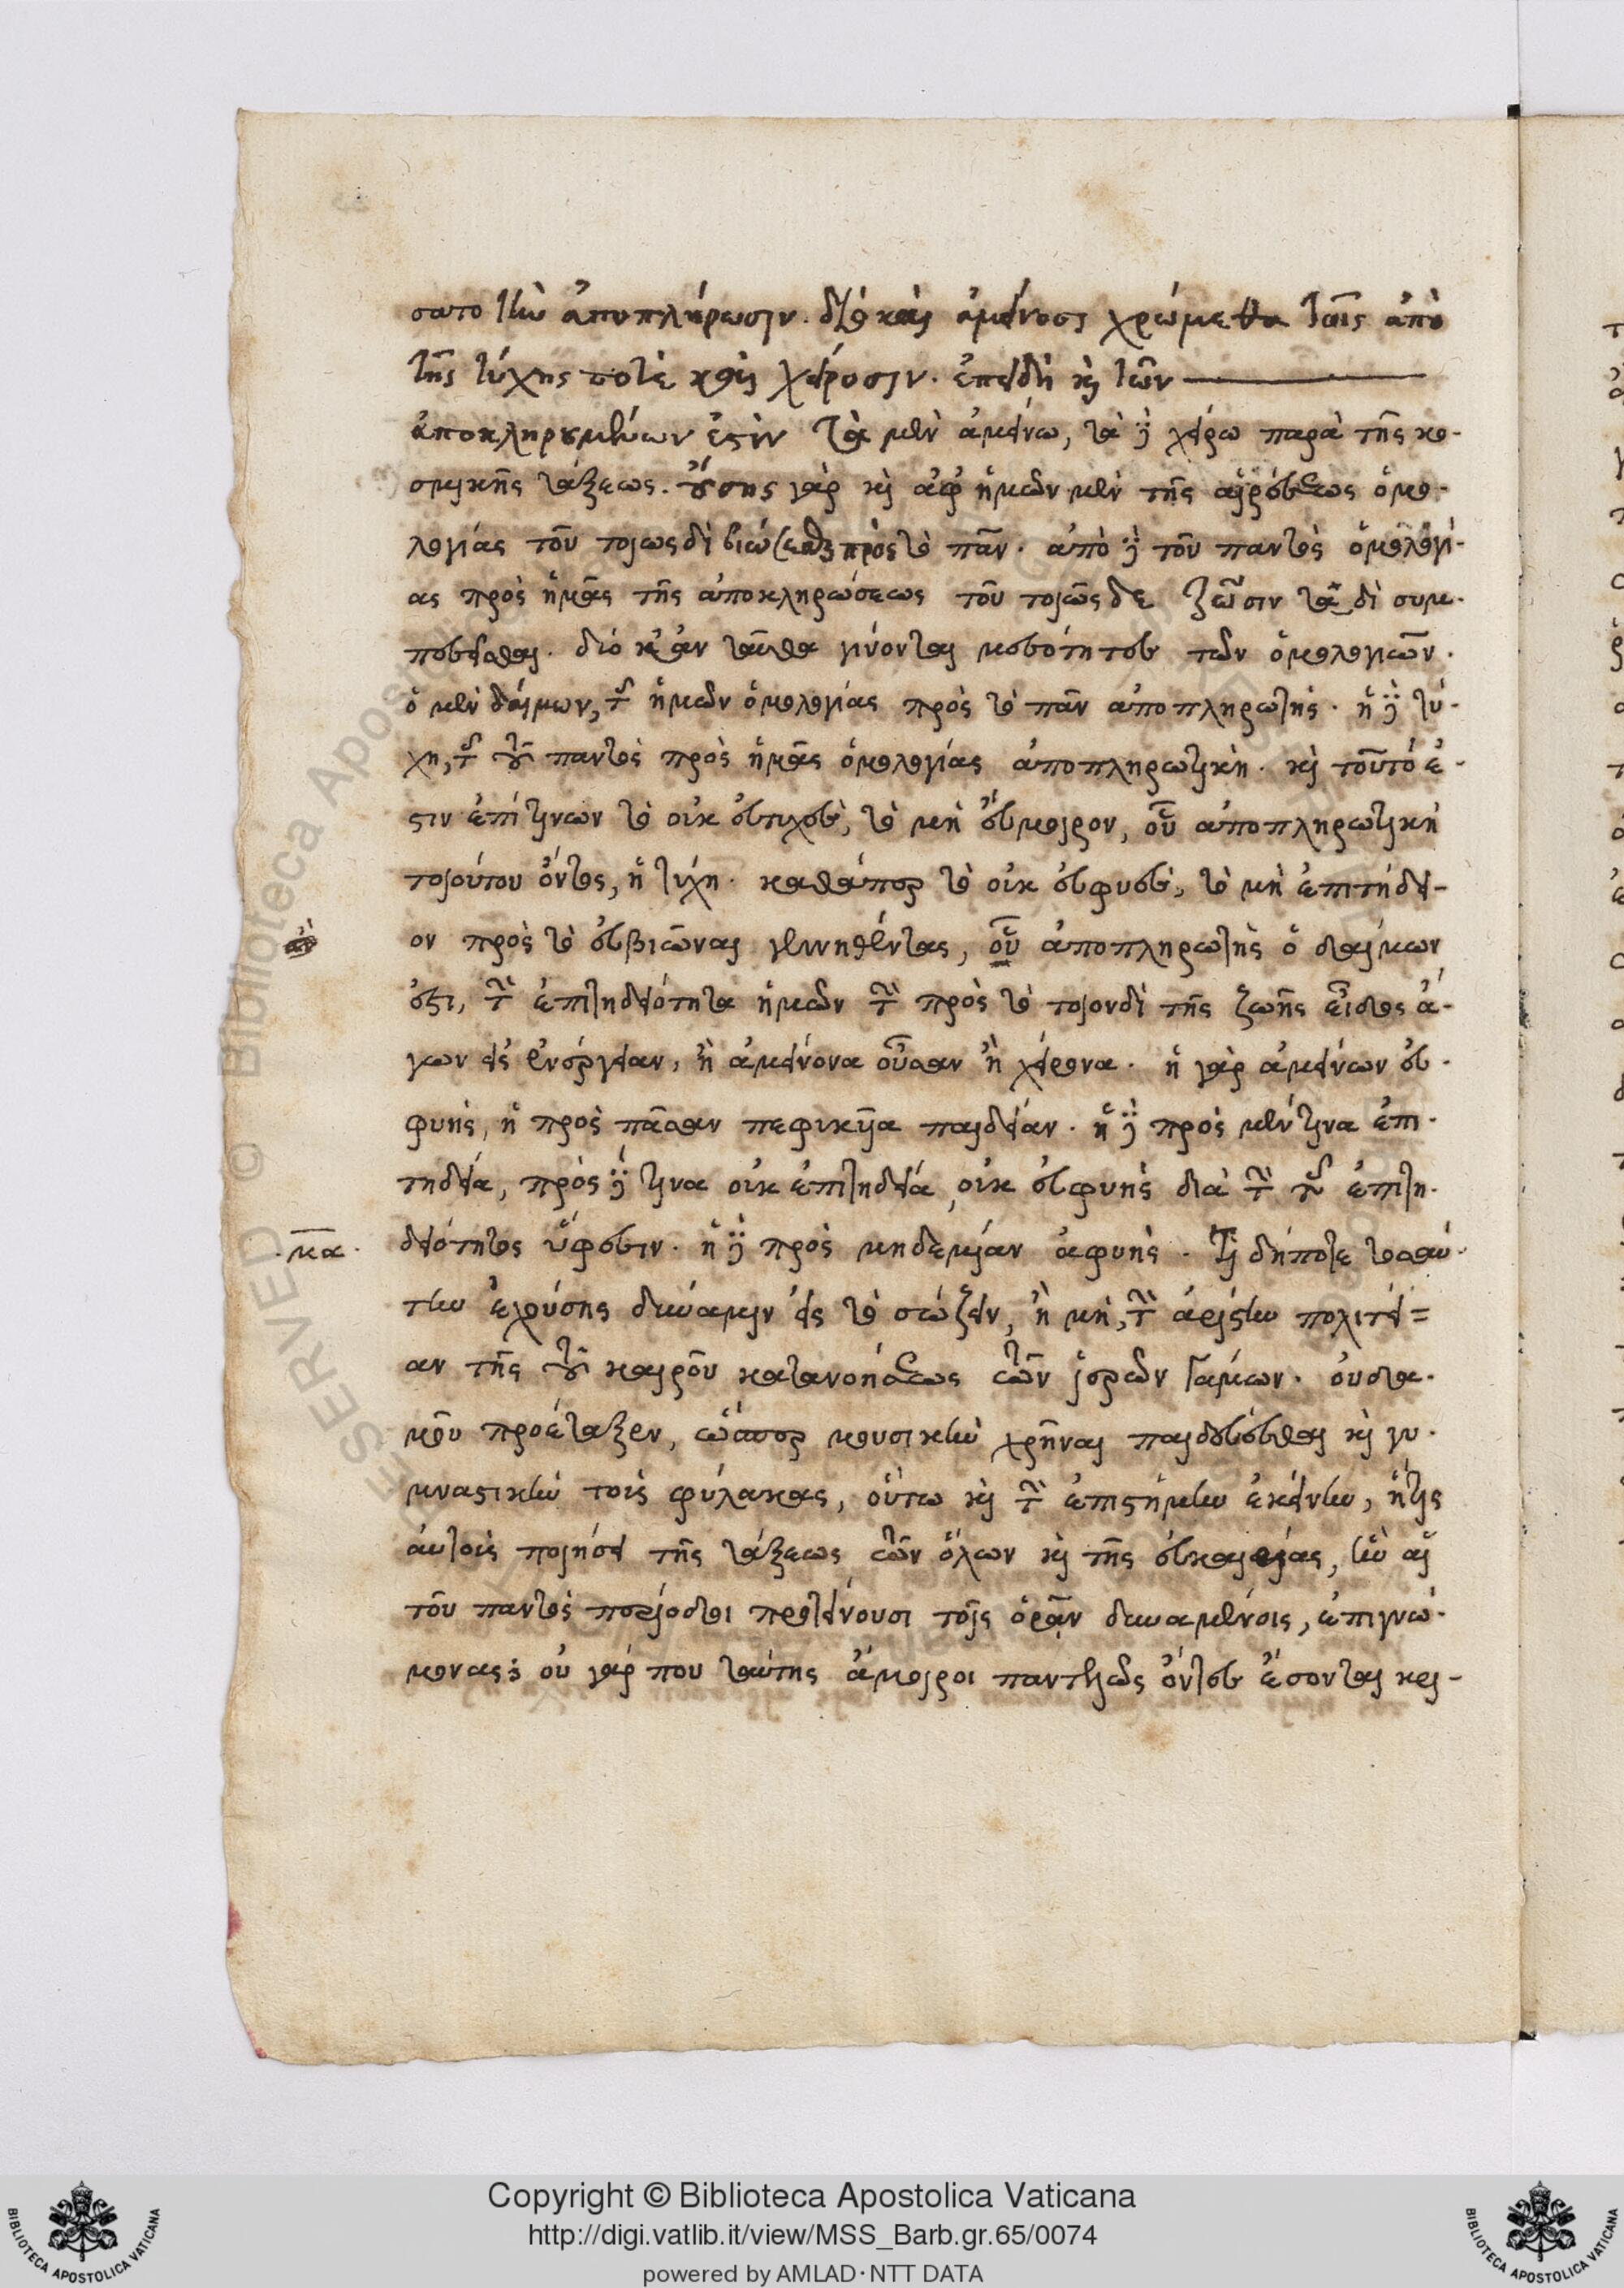 σατο τὴν ἀποπλήρωσιν. διὸ καὶ ἀμείνοσι χρώμεθα ταῖς ἀπὸ
τῆς τύχης ποτὲ καὶ χείροσιν. ἐπειδὴ καὶ τῶν
ἀποκληρουμένων ἐστὶν τὰ μὲν ἀμείνω, τὰ δὲ χείρω παρὰ τῆς κο-
σμικῆς τάξεως. οὔσης γὰρ καὶ ἀφ' ἡμῶν μὲν τῆς αἱρέσεως ὁμο-
λογίας τοῦ τοιωσδὶ βιώσεσθαι πρὸς τὸ πᾶν. ἀπὸ δὲ τοῦ παντὸς ὁμολογί-
ας πρὸς ἡμᾶς τῆς ἀποκληρώσεως τοῦ τοιῶσδε ζῶσιν τάδὶ συμ-
πεσεῖσθαι. διό κἀν ταῦθα γίνονται μεσότητες τῶν ὁμολογιῶν.
ὁ μὲν δαίμων, τῆς ἡμῶν ὁμολογίας πρὸς τὸ πᾶν ἀποπληρωτής. ἡ δὲ τύ-
χη, τῆς τοῦ παντὸς πρὸς ἡμᾶς ὁμολογίας ἀποπληρωτική. καὶ τοῦτό ἐ-
στιν ἐπί τινων τὸ οὐκ εὐτυχὲς, τὸ μὴ εὔμοιρον, οὗ ἀποπληρωτικὴ
τοιούτου ὄντος, ἡ τύχη. καθάπερ τὸ οὐκ εὐφυὲς, τὸ μὴ ἐπιτήδει-
ον πρὸς τὸ εὖ βιῶναι γεννηθέντας, οὗ ἀποπληρωτὴς ὁ δαίμων
ἐστι, τὴν ἐπιτηδειότητα ἡμῶν τὴν πρὸς τὸ τοιονδὶ τῆς ζωῆς εἶδος ἄ-
γων εἰς ἐνέργειαν, ἢ ἀμείνονα οὖσαν ἢ χείρονα. ἡ γὰρ ἀμείνων εὐ-
φυὴς, ἡ πρὸς πᾶσαν πεφυκυῖα παιδείαν. ἡ δὲ πρὸς μέν τινα ἐπι-
τηδεία, πρὸς δέ τινα οὐκ ἐπιτηδεία, οὐκ εὐφυὴς διὰ τὴν τῆς ἐπιτη-
.κα. δειότητος ὕφεσιν. ἡ δὲ πρὸς μηδεμίαν ἀφυής. Τί δήποτε τοσαύ-
την ἐχούσης δύναμιν εἰς τὸ σώζειν, ἢ μή, τὴν ἀρίστην πολιτεί=
αν τῆς τοῦ καιροῦ κατανοήσεως τῶν ἱερῶν Γάμων. οὐδα-
μοῦ προέταξεν, ὥσπερ μουσικὴν χρῆναι παιδεύεσθαι καὶ γυ-
μναστικὴν τοὺς φύλακας, οὕτω καὶ τὴν ἐπιστήμην ἐκείνην, ἥτις
αὐτοὺς ποιήσει τῆς τάξεως τῶν ὅλων καὶ τῆς εὐκαιρίας, ἣν αἱ
τοῦ παντὸς περίοδοι προτείνουσι τοῖς ὁρᾶν δυναμένοις, ἐπιγνώ-
μονας; οὐ γάρ που ταύτης ἄμοιροι παντελῶς ὄντες ἔσονται κρι-
Copyright © Biblioteca Apostolica Vaticana
http://digi.vatlib.it/view/MSS_Barb.gr.65/0074
powered by AMLAD·NTT DATA